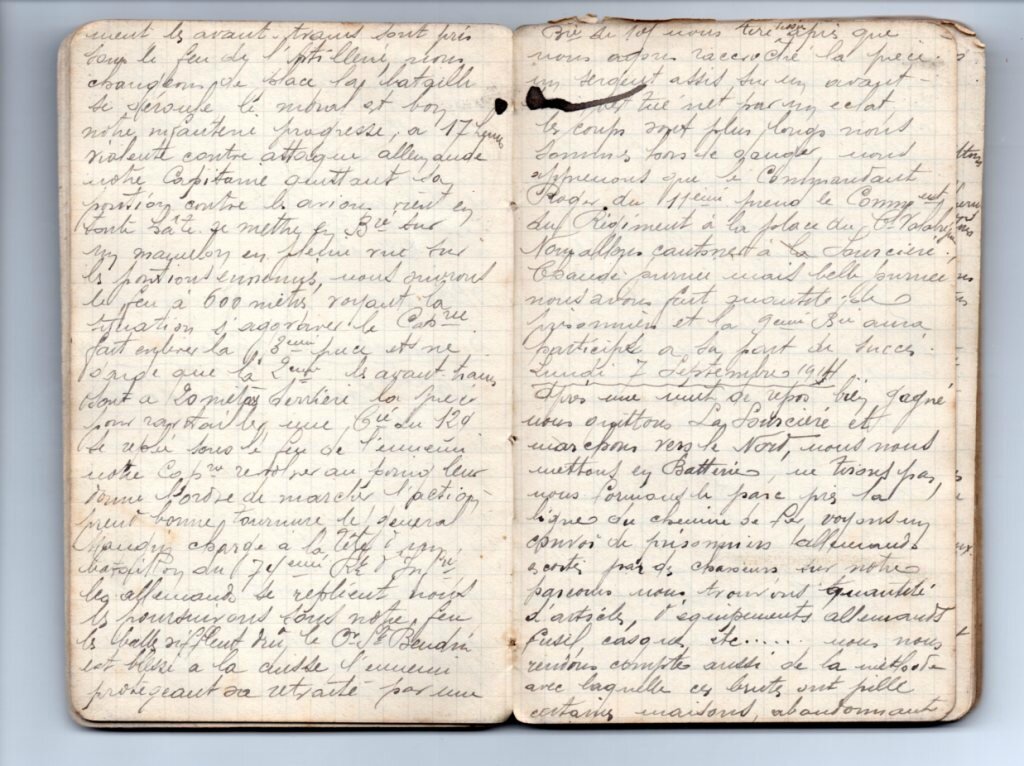 ment les avant-trains sont pris
sous le feu de l'artillerie, nous
changeons de place la bataille
se deroule le moral est bon
notre infanterie progresse, a 17 heures
violente contre attaque allemande
notre Capitaine quittant sa
position contre les avions vient en
toute hâte se mettre en Bie sur
un mamelon en pleine vue sur
les positions ennemies, nous ouvrons
le feu à 600 mètres voyant la
situation s'aggraver le Capne
fait enlever la 3eme piece et ne
garde que la 2eme les avant trains
sont a 20 mètres derrière la pièce
pour une Cie du 129
se replie sous le feu de l'ennemi
notre Capne revolver au poing leur
donne l'ordre de marcher l'action
prend bonne tournure le general
Mangin charge a la tête d'un
bataillon du 74eme Rt d'Inrie
les allemands se replient nous
les poursuivons sous notre feu
les balles sifflent dru, le
est blessé a la cuisse l'ennemi
protégeant sa retraite par une
Bie de 105 nous tire dessus que
nous avons raccroché la piece
un sergent assis sur un avant
tué net par un eclat
les coups sont plus longs nous
sommes hors de danger, nous
apprenons que le Commandant
Roger du 11eme prend le Commt
du Régiment à la place du
Nous allons cantonner à La Souricière.
Chaude journee mais belle journee
nous avons fait quantité de
prisonniers et la 9eme Bie aura
participé a sa part de succés.
Lundi 7 Septembre 1914
Après une nuit de repos bien gagné
nous quittons La Souricière et
marchons vers le Nord, nous nous
mettons en Batterie, ne tirons pas,
nous formons le parc près la
ligne du chemin de fer, voyons un
convoi de prisonniers allemands
escortés par des chasseurs sur notre
parcours nous trouvons quantité
d'articles, d'équipements allemands
fusil, casques, etc...... nous nous
rendons compte aussi de la methode
avec laquelle ces brutes ont pillé
certaines maisons, abandonnant